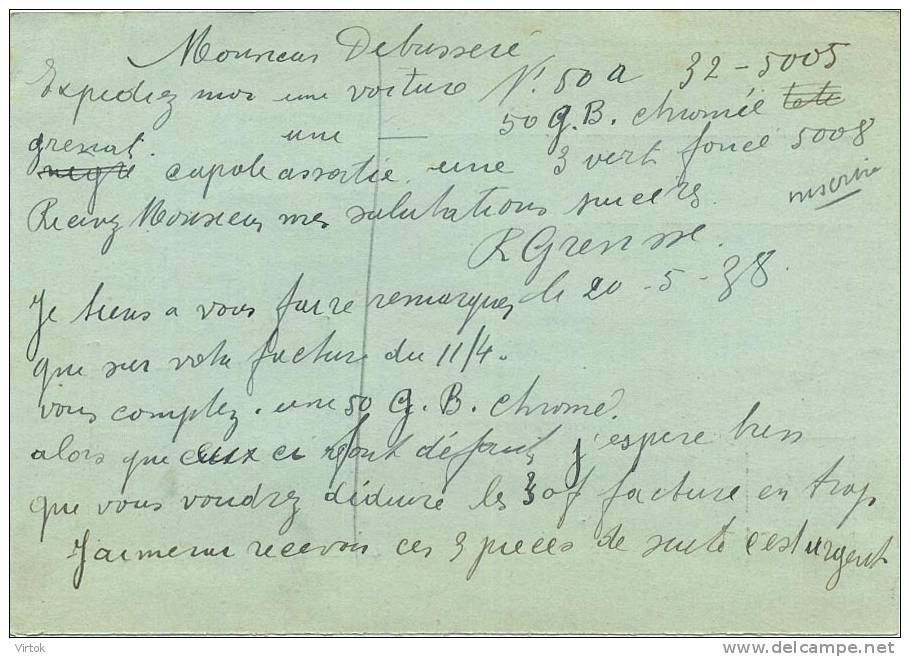 Monsieur Debussere
Expediez moi une voiture N° 50 a 32-5005
une — 50 G.B. chromée
grenat.
capote assortie. une 3 vert foncé 5008
inscrire
Recevez Monsieur mes salutations sincères.
R Grensse.
le 20-5-38.
Je tiens a vous faire remarquer
que sur votre facture du 11/4.
vous comptez. une 50 G.B. chromé.
alors que ceux ci font défaut, j'espere bien
que vous voudrez déduire les 3 of facture en trop
J'aimerai recevoir ces 3 pieces de suite c'est urgent
Virtok
delcampe.net